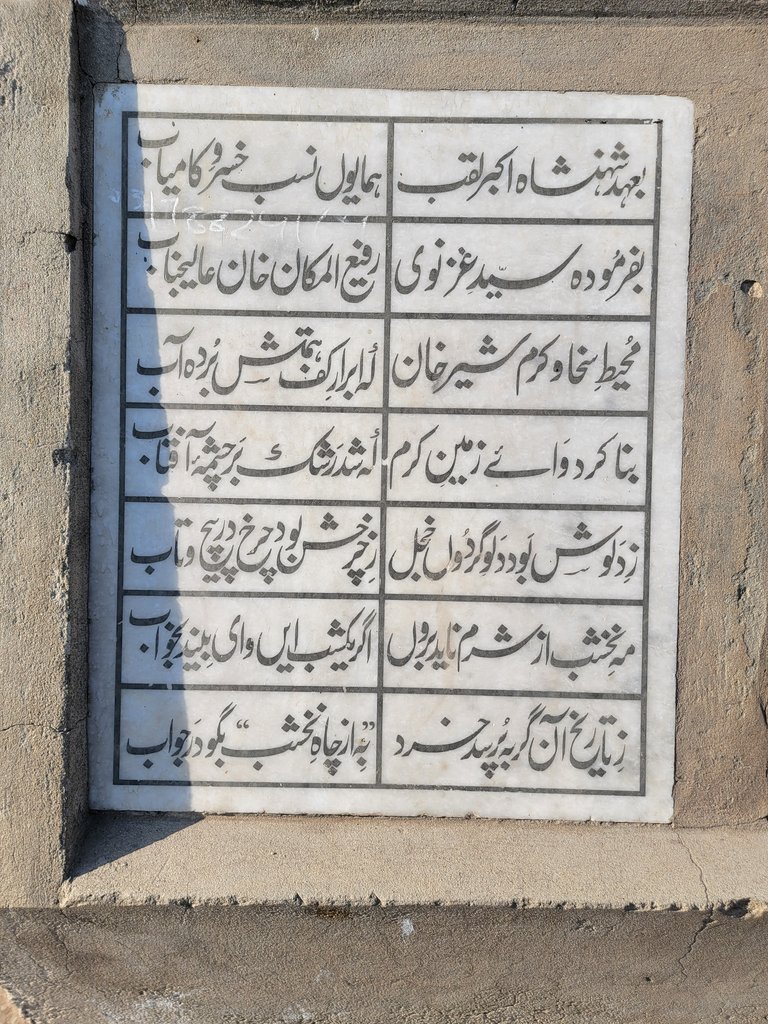 بعہد شہنشاہ اکبر لقب ہمایوں نسب خسرو کامیاب
بفرمُودہ سیّدِ غزنوی رفیع المکان خان عالیجناب
مُحیطِ سخا و کرم شیر خان کہ ابر از کف ہمتش بُردہ آب
بنا کرد وَائے زمینِ کرم کہ شد رَشک بَر چشمۂ آفتاب
زِدَلوش بَود دلو گردُوں خجل زِ چرخش بود چرخ در پیچ و تاب
مہِ نخشب از شرم ناید بروں اگر یکشب ایں وای بیند بخواب
زِتاریخ آن گر بہ پُرسد خرد "بِہ از چاہِ نخشب" بگو دَر جواب